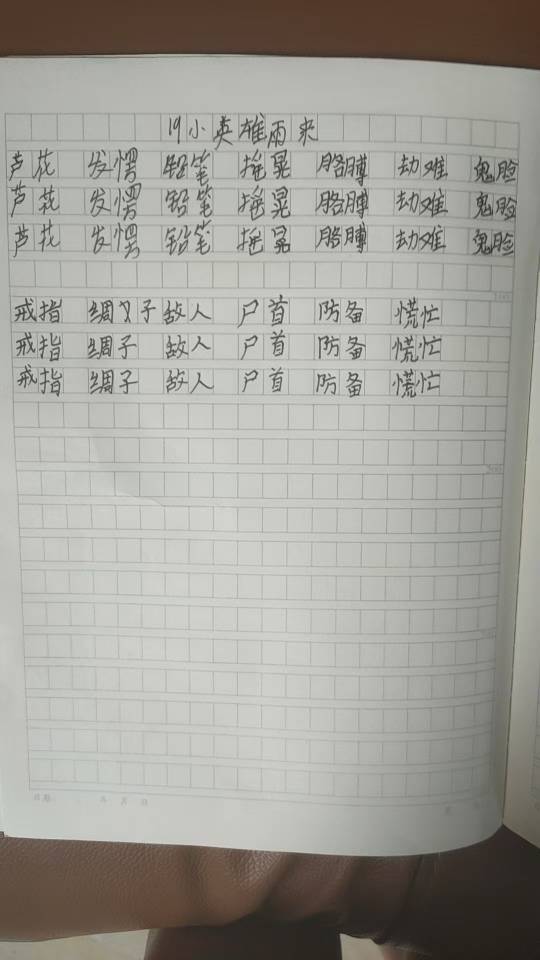 19小英雄雨来
芦花 发愣 铅笔 摇晃 胳膊 劫难 鬼脸
芦花 发愣 铅笔 摇晃 胳膊 劫难 鬼脸
芦花 发愣 铅笔 摇晃 胳膊 劫难 鬼脸
戒指 绸子 敌人 尸首 防备 慌忙
戒指 绸子 敌人 尸首 防备 慌忙
戒指 绸子 敌人 尸首 防备 慌忙